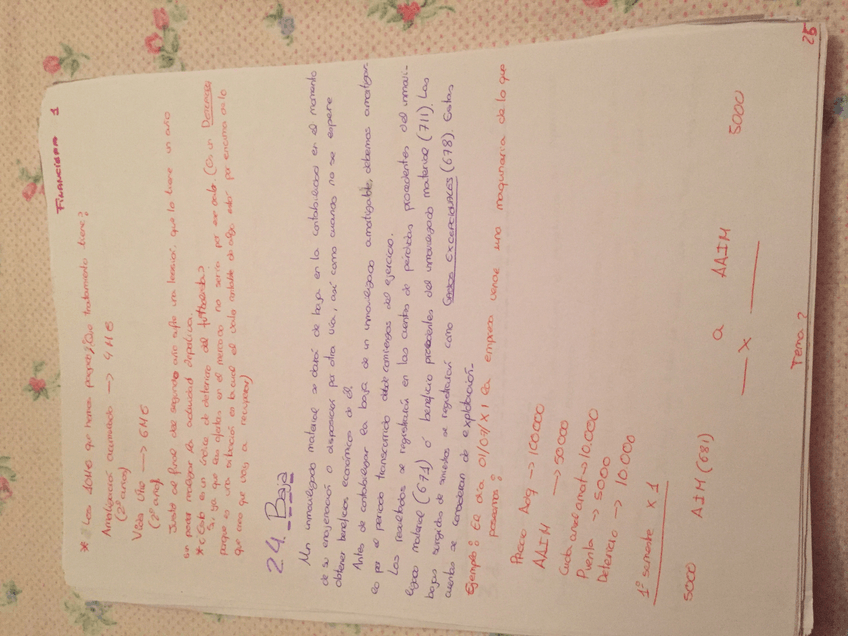 FINANCIERA 1
* Los 10M€ que hemos pagado ¿Que tratamiento tiene?
Amortización Acumulada → 4M€
(2º años)
Valor Uso → 6M€
(2º años)
Justo al final del segundo año sufre una lesión, que lo tiene un año
sin poder realizar la actividad deportiva.
* ¿Esto es un índice de deterioro del futbolista?
Si, ya que sus ofertas en el mercado no serían por ese valor (Es un DETERIORO
porque es una situación en la cual el valor contable de algo, está por encima de lo
que creo que voy a recuperar)
24. Baja
Un inmovilizado material se dará de baja en la contabilidad en el momento
de su enajenación o disposición por otra vía, así como cuando no se espere
obtener beneficios económicos de él.
Antes de contabilizar la baja de un inmovilizado amortizable, debemos amortizar-
lo por el periodo transcurrido desde comienzos del ejercicio.
Los resultados se registrarán en las cuentas de pérdidas procedentes del inmovi-
lizado material (671) ó beneficio procedentes del inmovilizado material (711). Las
bajas surgidas de siniestros se registrarán como GASTOS EXCEPCIONALES (678). Estas
cuentas se consideran de explotación.
Ejemplo: El día 01/04/X1 la empresa vende una maquinaria de lo que
poseemos:
Precio Adq → 100.000
AAIM → 50.000
Cuota anual amort → 10.000
Puesta → 5000
Deterioro → 10.000
1º semestre x 1
5000 AIM (681) a AAIM 5000
— x —
Tema 2
25